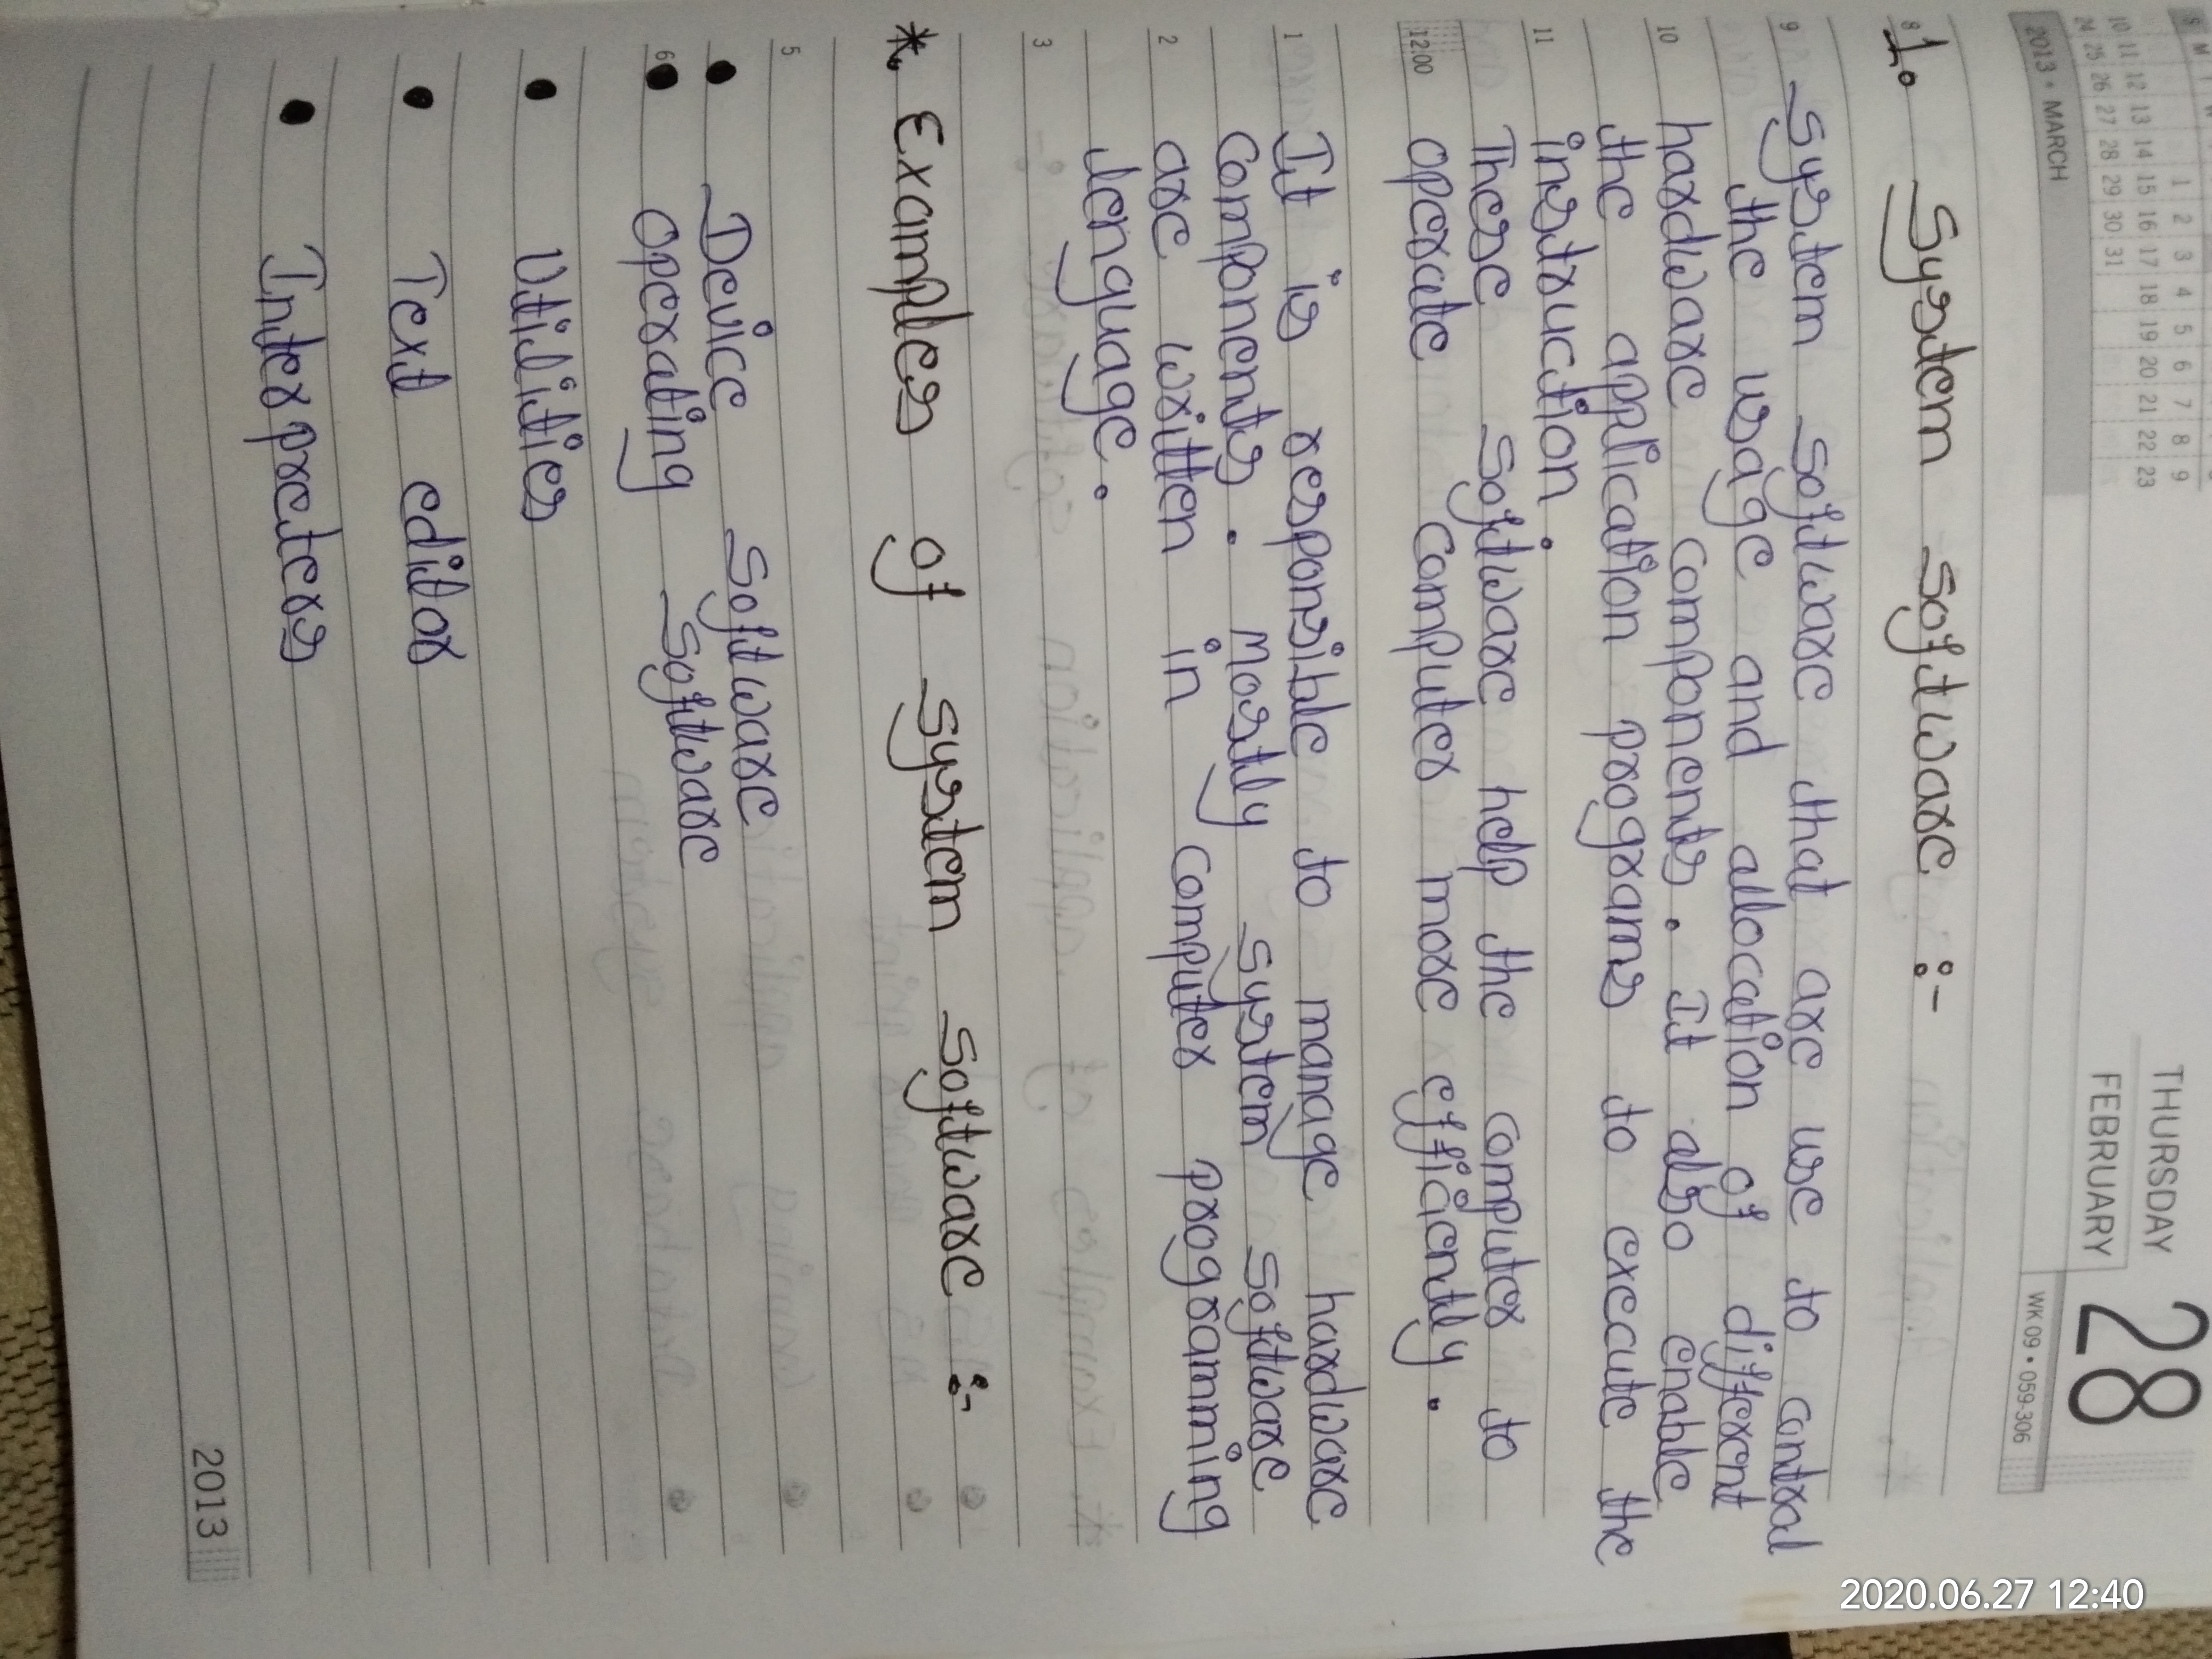 S M T W
1 2 3 4 5 6 7 8 9
10 11 12 13 14 15 16 17 18 19 20 21 22 23
24 25 26 27 28 29 30 31
2013 • MARCH
THURSDAY
FEBRUARY
28
WK 09 • 059-306
2020.06.27 12:40
8 1. System software :-
9 System software that are use to control
the usage and allocation of different
10 hardware components. It also enable
the application programs to execute the
11 instruction.
These software help the computer to
12.00 operate computer more efficiently.
1 It is responsible to manage hardware
components. Mostly system software
2 are written in computer programming
lenguage.
3
* Examples of system software :-
5
• Device software
6 • Operating software
• Utilities
• Text editor
• Interpreters
2013